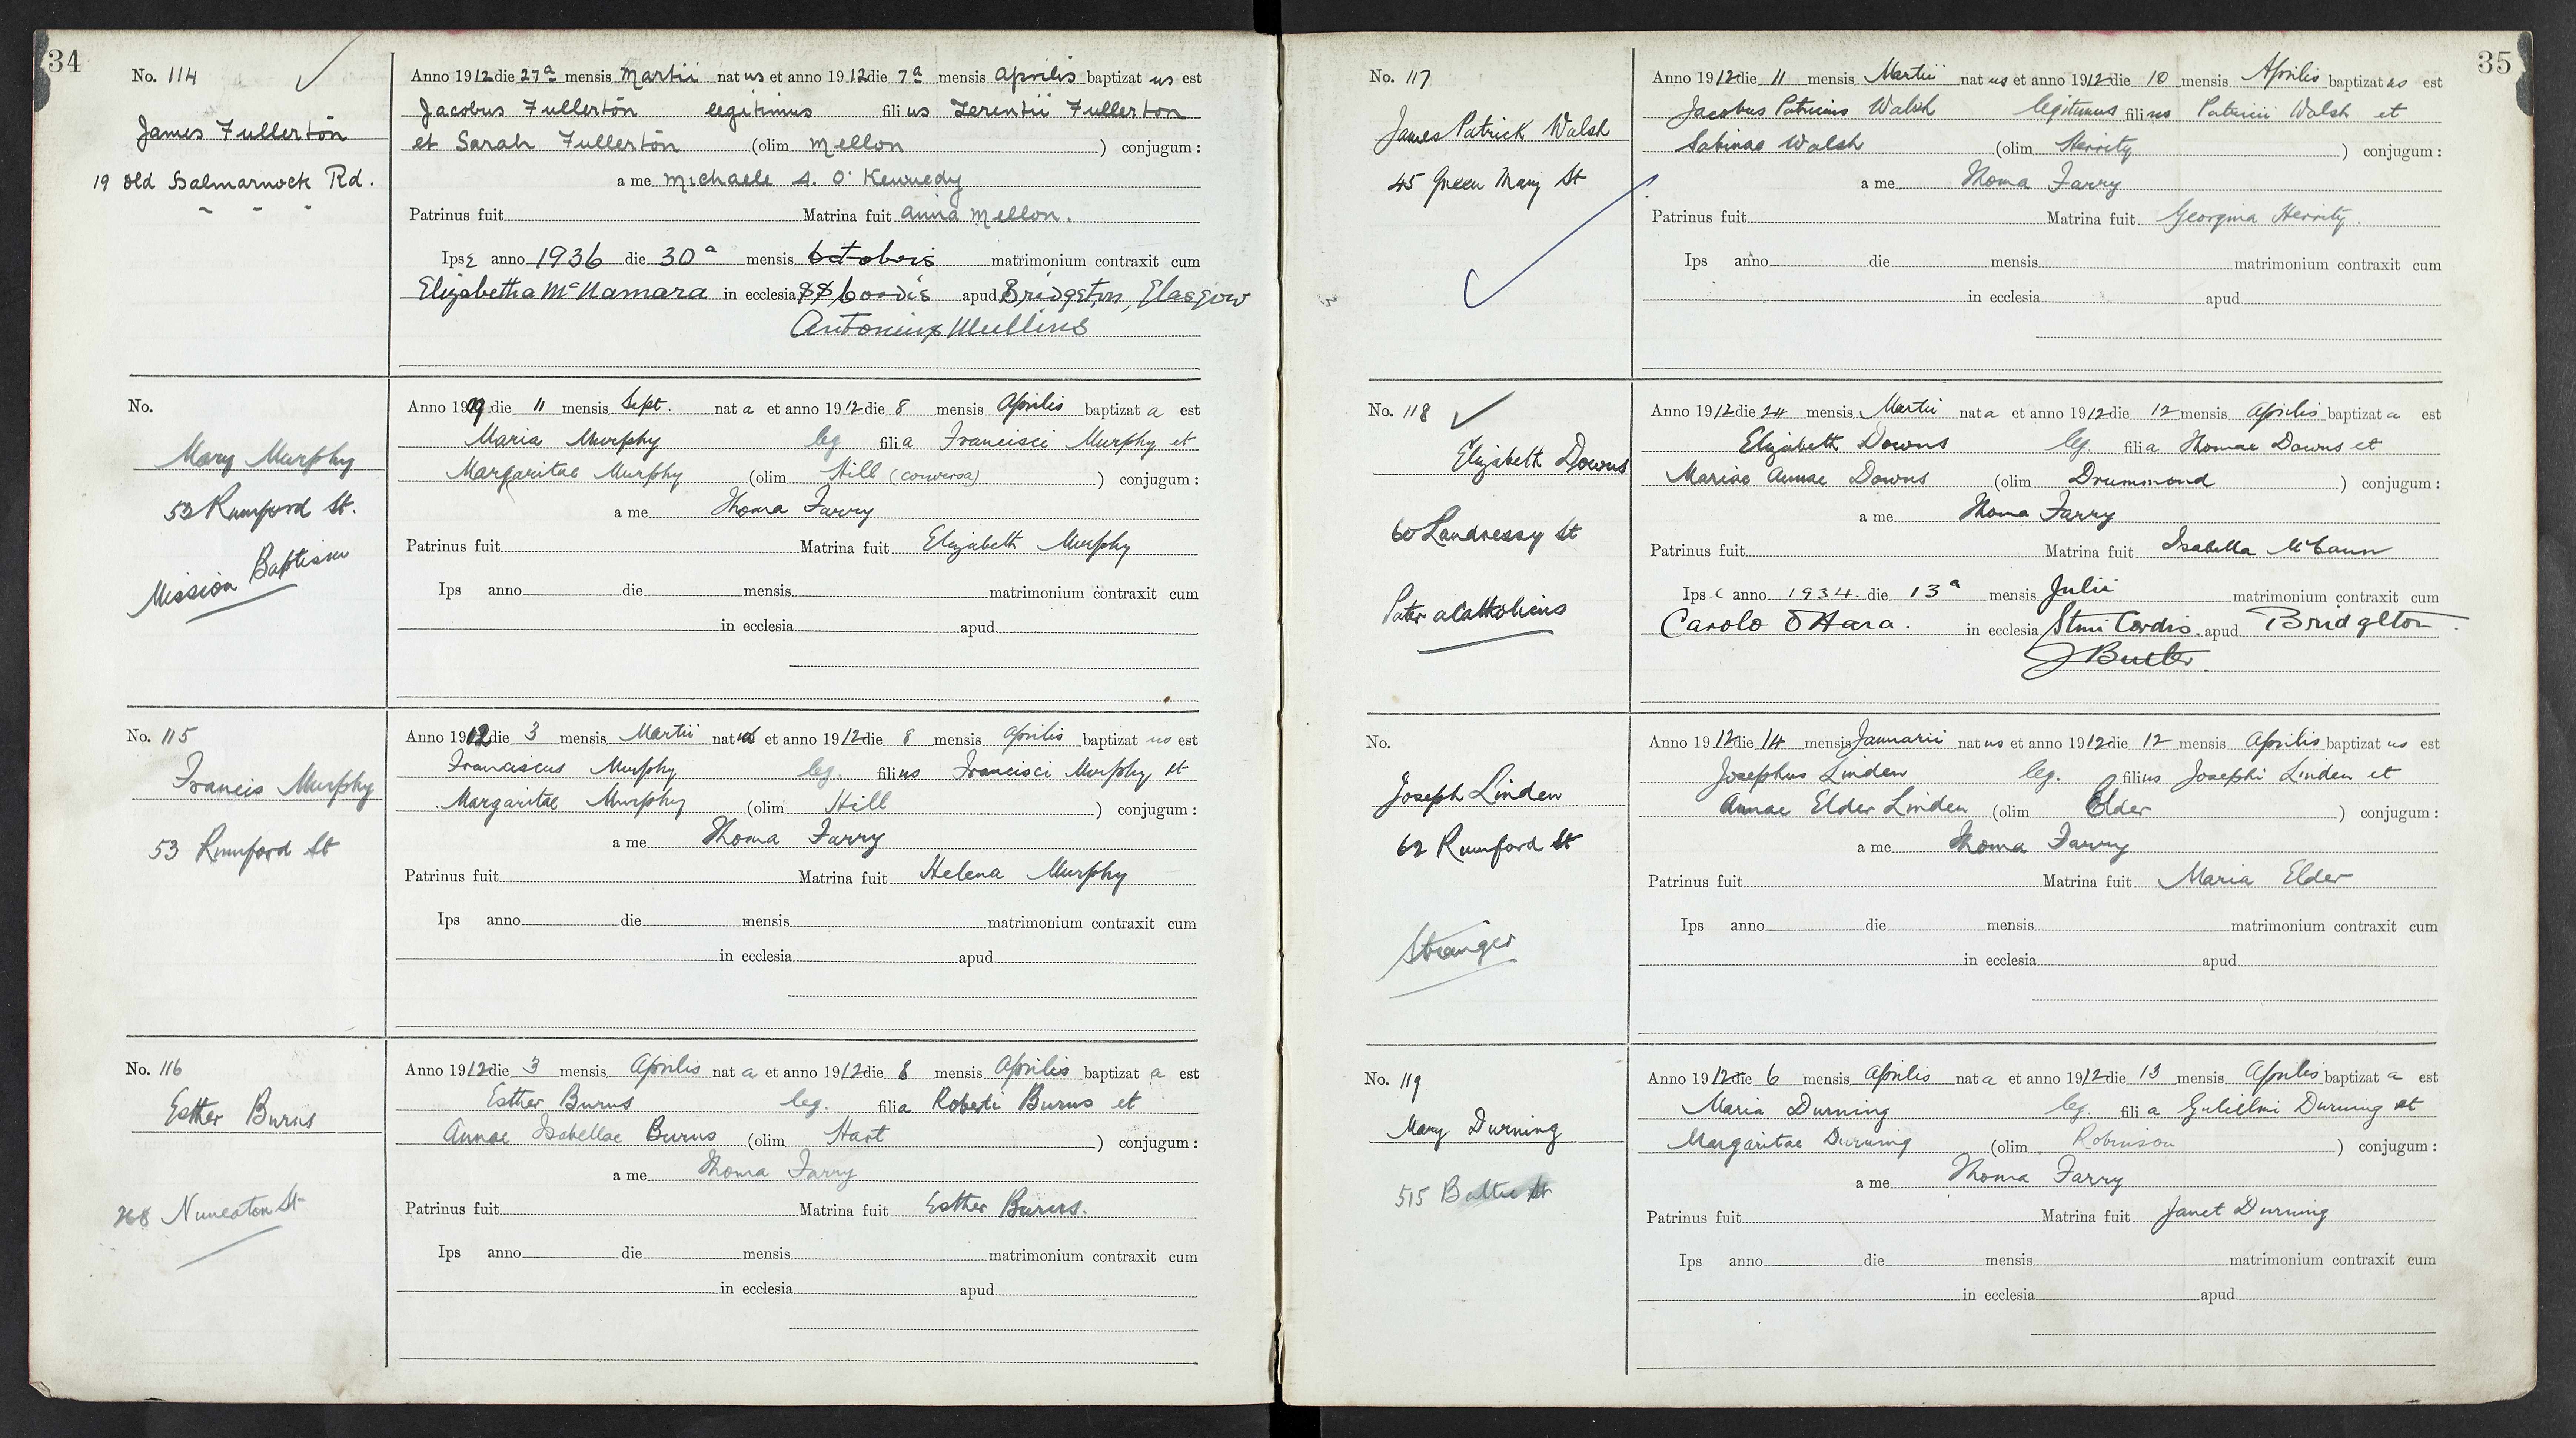 34
No. 114
James Fullerton
19 Old Dalmarnock Rd.
Anno 1912 die 27a mensis Martii natus et anno 1912 die 7a mensis Aprilis baptizatus est
Jacobus Fullerton legitimus filius Terentii Fullerton
et Sarah Fullerton (olim Mellon ) conjugum:
a me Michaele A. O'Kennedy
Patrinus fuit Matrina fuit Anna Mellon.
Ipse anno 1936 die 30a mensis Octobris matrimonium contraxit cum
Elizabetha McNamara in ecclesia SS Cordis apud Bridgeton, Glasgow
Antonius Mullins
No.
Mary Murphy
53 Rumford St.
Mission Baptism
Anno 1909 die 11 mensis Sept. nata et anno 1912 die 8 mensis Aprilis baptizata est
Maria Murphy leg filia Francisci Murphy et
Margaritae Murphy (olim Hill (conversa) ) conjugum:
a me Thoma Farry
Patrinus fuit Matrina fuit Elizabeth Murphy
Ips anno die mensis matrimonium contraxit cum
in ecclesia apud
No. 115
Francis Murphy
53 Rumford St
Anno 1912 die 3 mensis Martii natus et anno 1912 die 8 mensis Aprilis baptizatus est
Franciscus Murphy leg. filius Francisci Murphy et
Margaritae Murphy (olim Hill ) conjugum:
a me Thoma Farry
Patrinus fuit Matrina fuit Helena Murphy
Ips anno die mensis matrimonium contraxit cum
in ecclesia apud
No. 116
Esther Burns
268 Nuneaton St
Anno 1912 die 3 mensis Aprilis nata et anno 1912 die 8 mensis Aprilis baptizata est
Esther Burns leg. filia Roberti Burns et
Annae Isabellae Burns (olim Hart ) conjugum:
a me Thoma Farry
Patrinus fuit Matrina fuit Esther Burns.
Ips anno die mensis matrimonium contraxit cum
in ecclesia apud
35
No. 117
James Patrick Walsh
45 Queen Mary St
Anno 1912 die 11 mensis Martii natus et anno 1912 die 10 mensis Aprilis baptizatus est
Jacobus Patricius Walsh legitimus filius Patricii Walsh et
Sabinae Walsh (olim Herrity ) conjugum:
a me Thoma Farry
Patrinus fuit Matrina fuit Georgina Herrity.
Ips anno die mensis matrimonium contraxit cum
in ecclesia apud
No. 118
Elizabeth Downs
60 Landressy St
Pater acattolicus
Anno 1912 die 24 mensis Martii nata et anno 1912 die 12 mensis Aprilis baptizata est
Elizabeth Downs leg. filia Thomae Downs et
Mariae Annae Downs (olim Drummond ) conjugum:
a me Thoma Farry
Patrinus fuit Matrina fuit Isabella McCann
Ips anno 1934. die 13a mensis Julii matrimonium contraxit cum
Carolo O'Hara. in ecclesia Stmi Cordis. apud Bridgeton.
J Butler.
No.
Joseph Linden
62 Rumford St
Stranger
Anno 1912 die 14 mensis Januarii natus et anno 1912 die 12 mensis Aprilis baptizatus est
Josephus Linden leg. filius Josephi Linden et
Annae Elder Linden (olim Elder ) conjugum:
a me Thoma Farry
Patrinus fuit Matrina fuit Maria Elder
Ips anno die mensis matrimonium contraxit cum
in ecclesia apud
No. 119
Mary Durning
515 Baltic St
Anno 1912 die 6 mensis Aprilis nata et anno 1912 die 13 mensis Aprilis baptizata est
Maria Durning leg. filia Gulielmi Durning et
Margaritae Durning (olim Robinson ) conjugum:
a me Thoma Farry
Patrinus fuit Matrina fuit Janet Durning
Ips anno die mensis matrimonium contraxit cum
in ecclesia apud